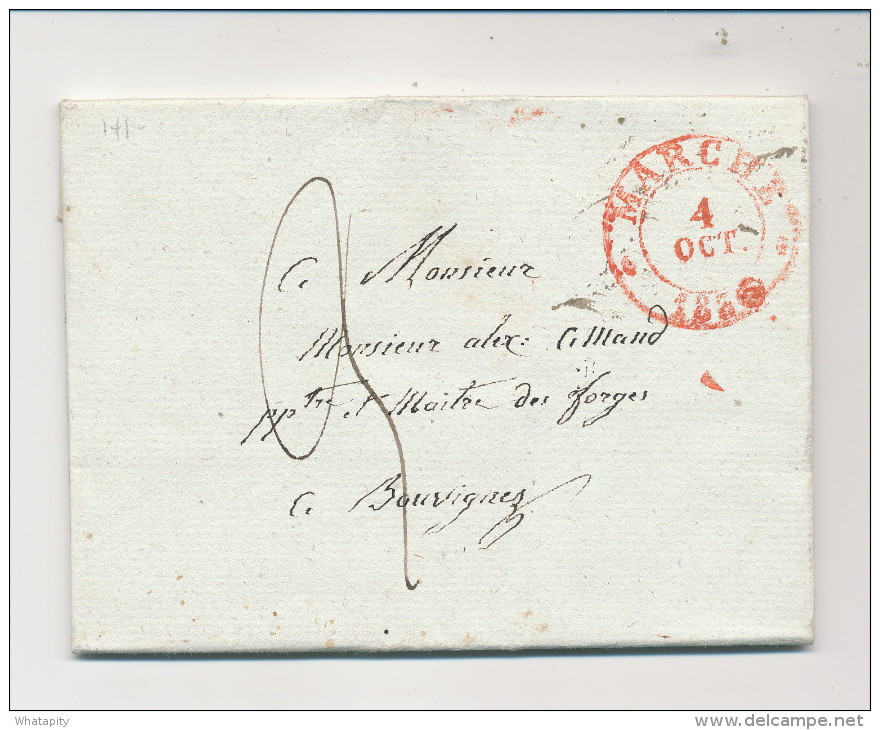 141
MARCHE
4
OCT.
183
a Monsieur
Monsieur alex: amand
pptre et Maitre des forges
a Bouvignes
Whatapity
www.delcampe.net